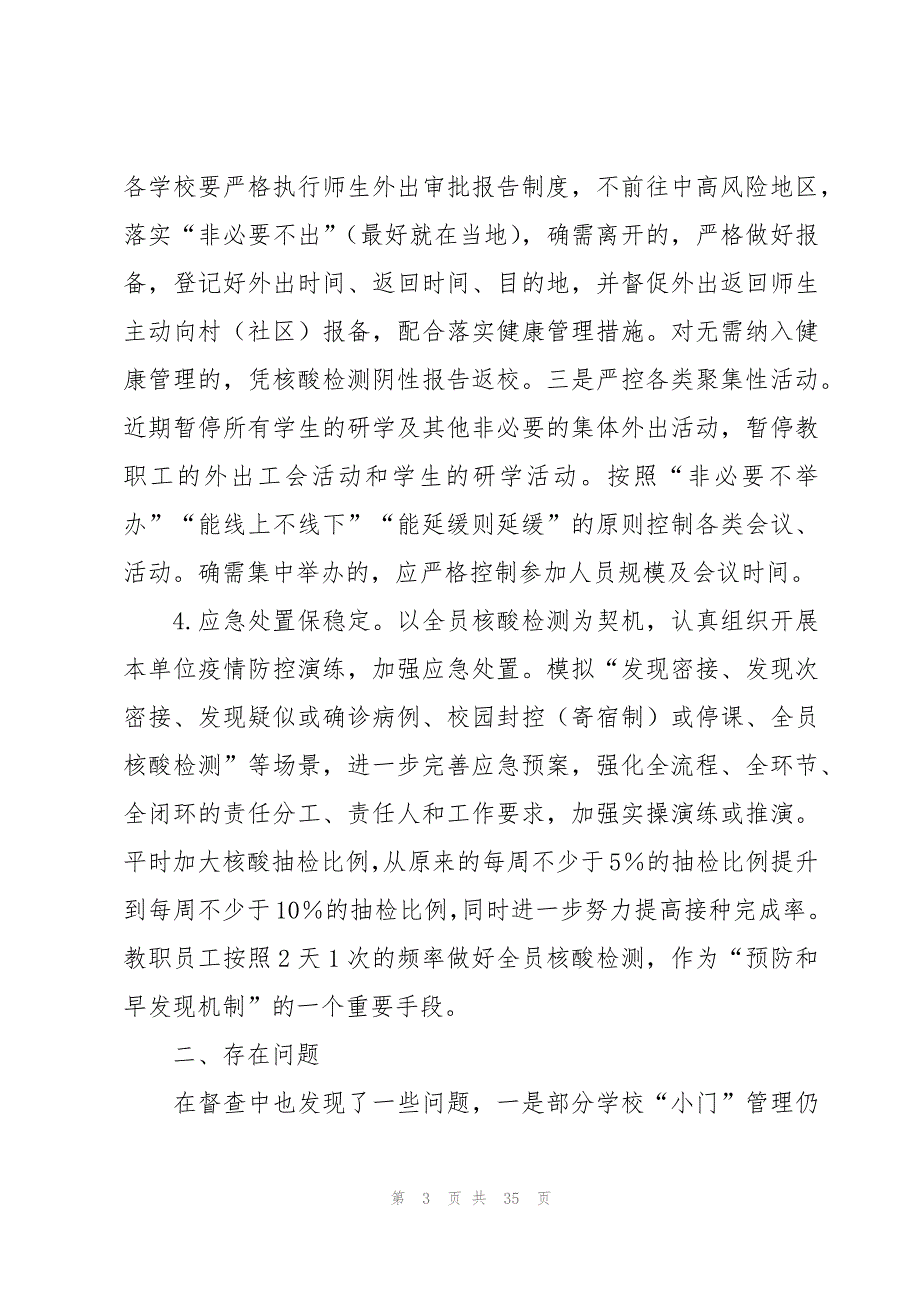 各学校要严格执行师生外出审批报告制度，不前往中高风险地区，
落实“非必要不出”（最好就在当地），确需离开的，严格做好报
备，登记好外出时间、返回时间、目的地，并督促外出返回师生
主动向村（社区）报备，配合落实健康管理措施。对无需纳入健
康管理的，凭核酸检测阴性报告返校。三是严控各类聚集性活动。
近期暂停所有学生的研学及其他非必要的集体外出活动，暂停教
职工的外出工会活动和学生的研学活动。按照“非必要不举
办”“能线上不线下”“能延缓则延缓”的原则控制各类会议、
活动。确需集中举办的，应严格控制参加人员规模及会议时间。
4.应急处置保稳定。以全员核酸检测为契机，认真组织开展
本单位疫情防控演练，加强应急处置。模拟“发现密接、发现次
密接、发现疑似或确诊病例、校园封控（寄宿制）或停课、全员
核酸检测”等场景，进一步完善应急预案，强化全流程、全环节、
全闭环的责任分工、责任人和工作要求，加强实操演练或推演。
平时加大核酸抽检比例，从原来的每周不少于5%的抽检比例提升
到每周不少于10%的抽检比例，同时进一步努力提高接种完成率。
教职员工按照2天1次的频率做好全员核酸检测，作为“预防和
早发现机制”的一个重要手段。
二、存在问题
在督查中也发现了一些问题，一是部分学校“小门”管理仍
第 3 页 共 35 页